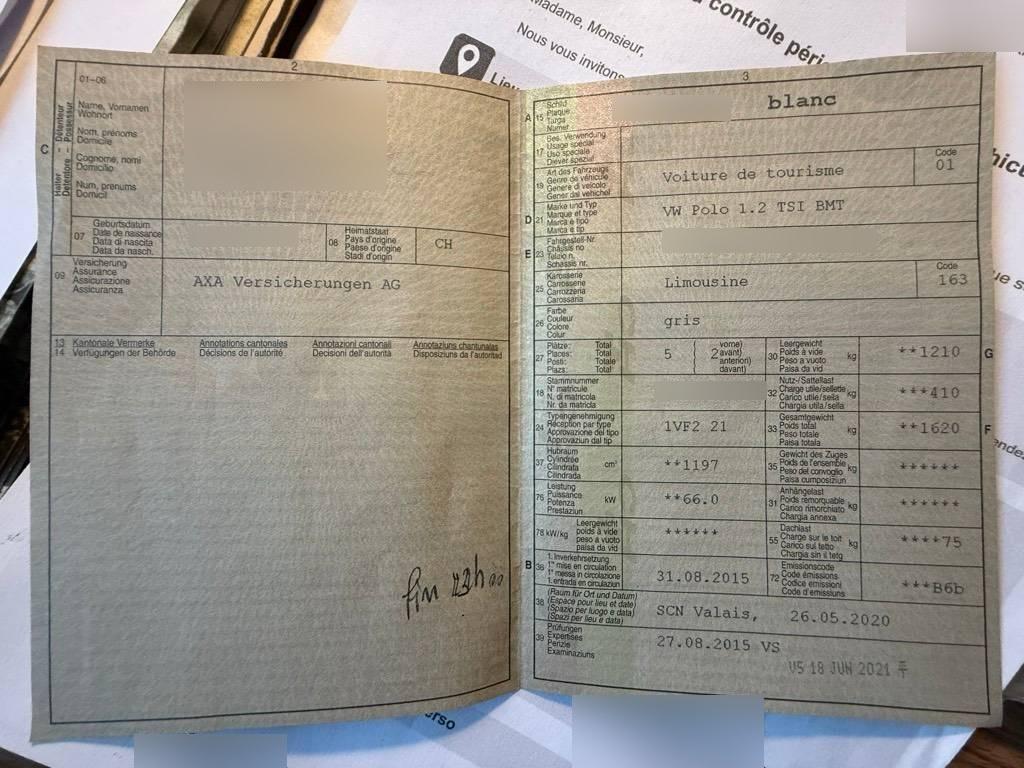 Madame, Monsieur,
contrôle péri
Nous vous invitons
Lieu
2
01-06
Détenteur
Possessur
Halter
Detentore
C
Name, Vornamen
Wohnort
Nom, prénoms
Domicile
Cognome, nomi
Domicilio
Num, prenums
Domicil
07
Geburtsdatum
Date de naissance
Data di nascita
Data da nasch.
08
Heimatstaat
Pays d'origine
Paese d'origine
Stadi d'origin
CH
09
Versicherung
Assurance
Assicurazione
Assicuranza
AXA Versicherungen AG
13 Kantonale Vermerke Annotations cantonales Annotazioni cantonali Annotaziuns chantunalas
14 Verfügungen der Behörde Décisions de l'autorité Decisioni dell'autorità Disposiziuns da l'autoritad
fin 23h00
3
A 15
Schild
Plaque
Targa
Numer
blanc
17
Bes. Verwendung
Usage spécial
Uso speciale
Diever spezial
19
Art des Fahrzeugs
Genre de véhicule
Genere di veicolo
Gener dal vehichel
Voiture de tourisme
Code
01
D 21
Marke und Typ
Marque et type
Marca e tipo
Marca e tip
VW Polo 1.2 TSI BMT
E 23
Fahrgestell-Nr.
Châssis no
Telaio n.
Schassis nr.
25
Karosserie
Carrosserie
Carrozzeria
Carossaria
Limousine
Code
163
26
Farbe
Couleur
Colore
Colur
gris
27
Plätze: Total
Places: Total
Posti: Totale
Plazs: Total
5
2
vorne)
avant)
anteriori)
davant)
30
Leergewicht
Poids à vide
Peso a vuoto
Paisa da vid
kg
**1210
G
18
Stammnummer
N° matricule
N. di matricola
Nr. da matricla
32
Nutz-/Sattellast
Charge utile/sellette
Carico utile/sella
Chargia utila/sella
kg
***410
24
Typengenehmigung
Réception par type
Approvazione del tipo
Approvaziun dal tip
1VF2 21
33
Gesamtgewicht
Poids total
Peso totale
Paisa totala
kg
**1620
F
37
Hubraum
Cylindrée
Cilindrata
Cilindrada
cm³
**1197
35
Gewicht des Zuges
Poids de l'ensemble
Peso del convoglio
Paisa cumposiziun
kg
******
76
Leistung
Puissance
Potenza
Prestaziun
kW
**66.0
31
Anhängelast
Poids remorquable
Carico rimorchiato
Chargia annexa
kg
******
78 kW/kg
Leergewicht
poids à vide
peso a vuoto
paisa da vid
******
55
Dachlast
Charge sur le toit
Carico sul tetto
Chargia sin il tetg
kg
****75
B 36
1. Inverkehrsetzung
1re mise en circulation
1a messa in circolazione
1. entrada en circulaziun
31.08.2015
72
Emissionscode
Code émissions
Codice emissioni
Code d'emissiuns
***B6b
38
(Raum für Ort und Datum)
(Espace pour lieu et date)
(Spazio per luogo e data)
(Spazi per lieu e data)
SCN Valais, 26.05.2020
39
Prüfungen
Expertises
Perizie
Examinaziuns
27.08.2015 VS
VS 18 JUN 2021